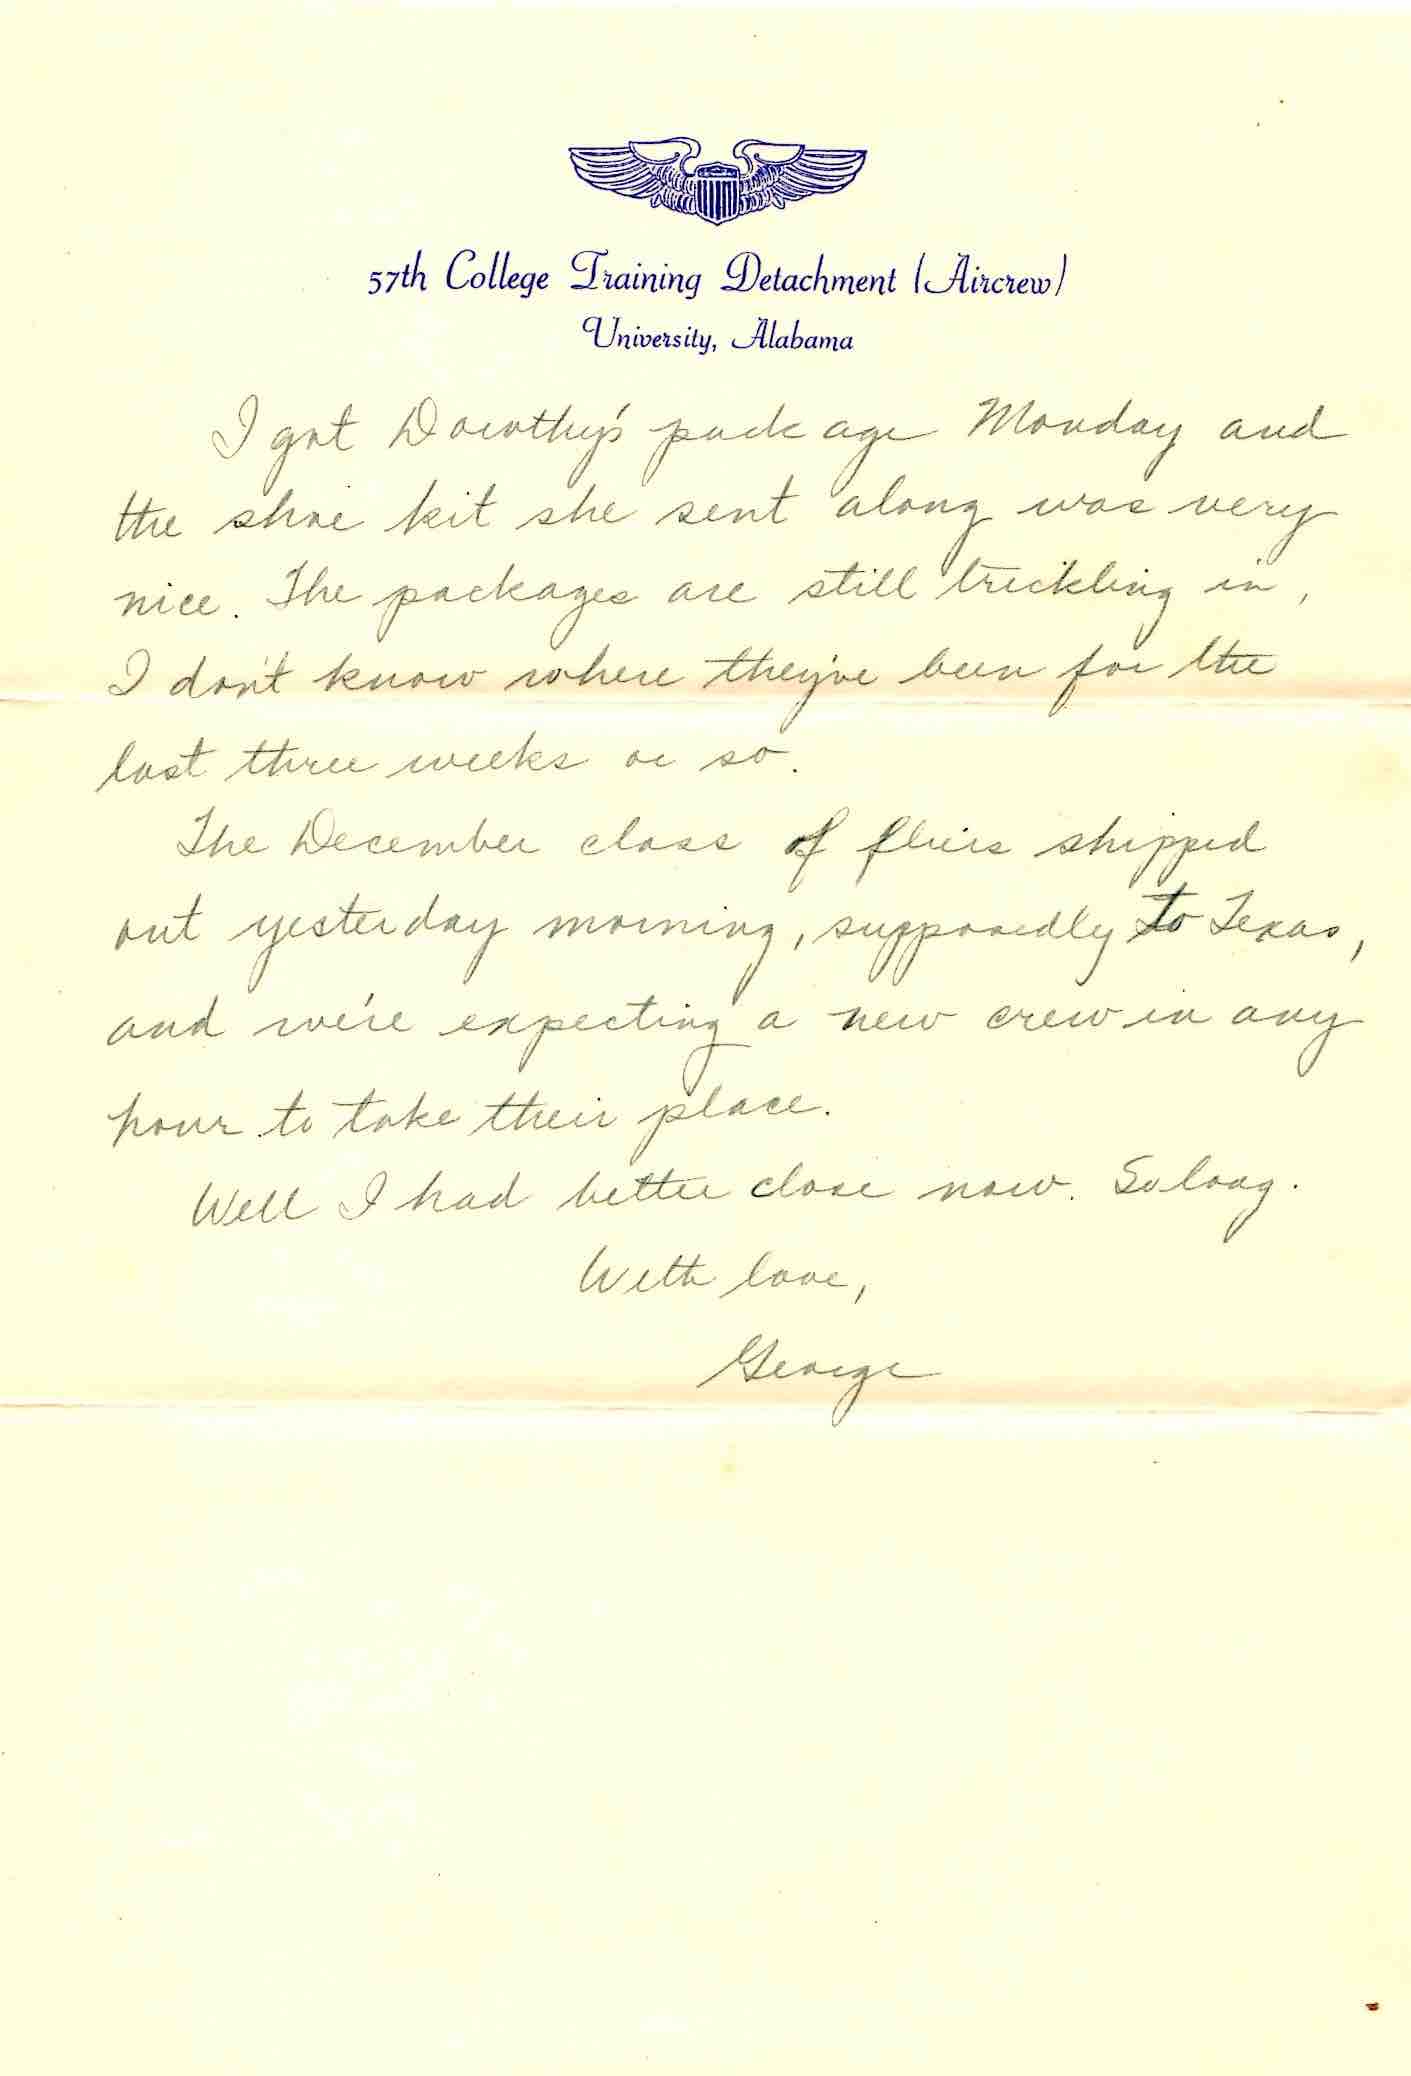 57th College Training Detachment (Aircrew)
University, Alabama
I got Dorothy's package Monday and
the shoe kit she sent along was very
nice. The packages are still trickling in,
I don't know where they've been for the
last three weeks or so.
The December class of fliers shipped
out yesterday morning, supposedly to Texas,
and we're expecting a new crew in any
hour to take their place.
Well I had better close now. So long.
With love,
George